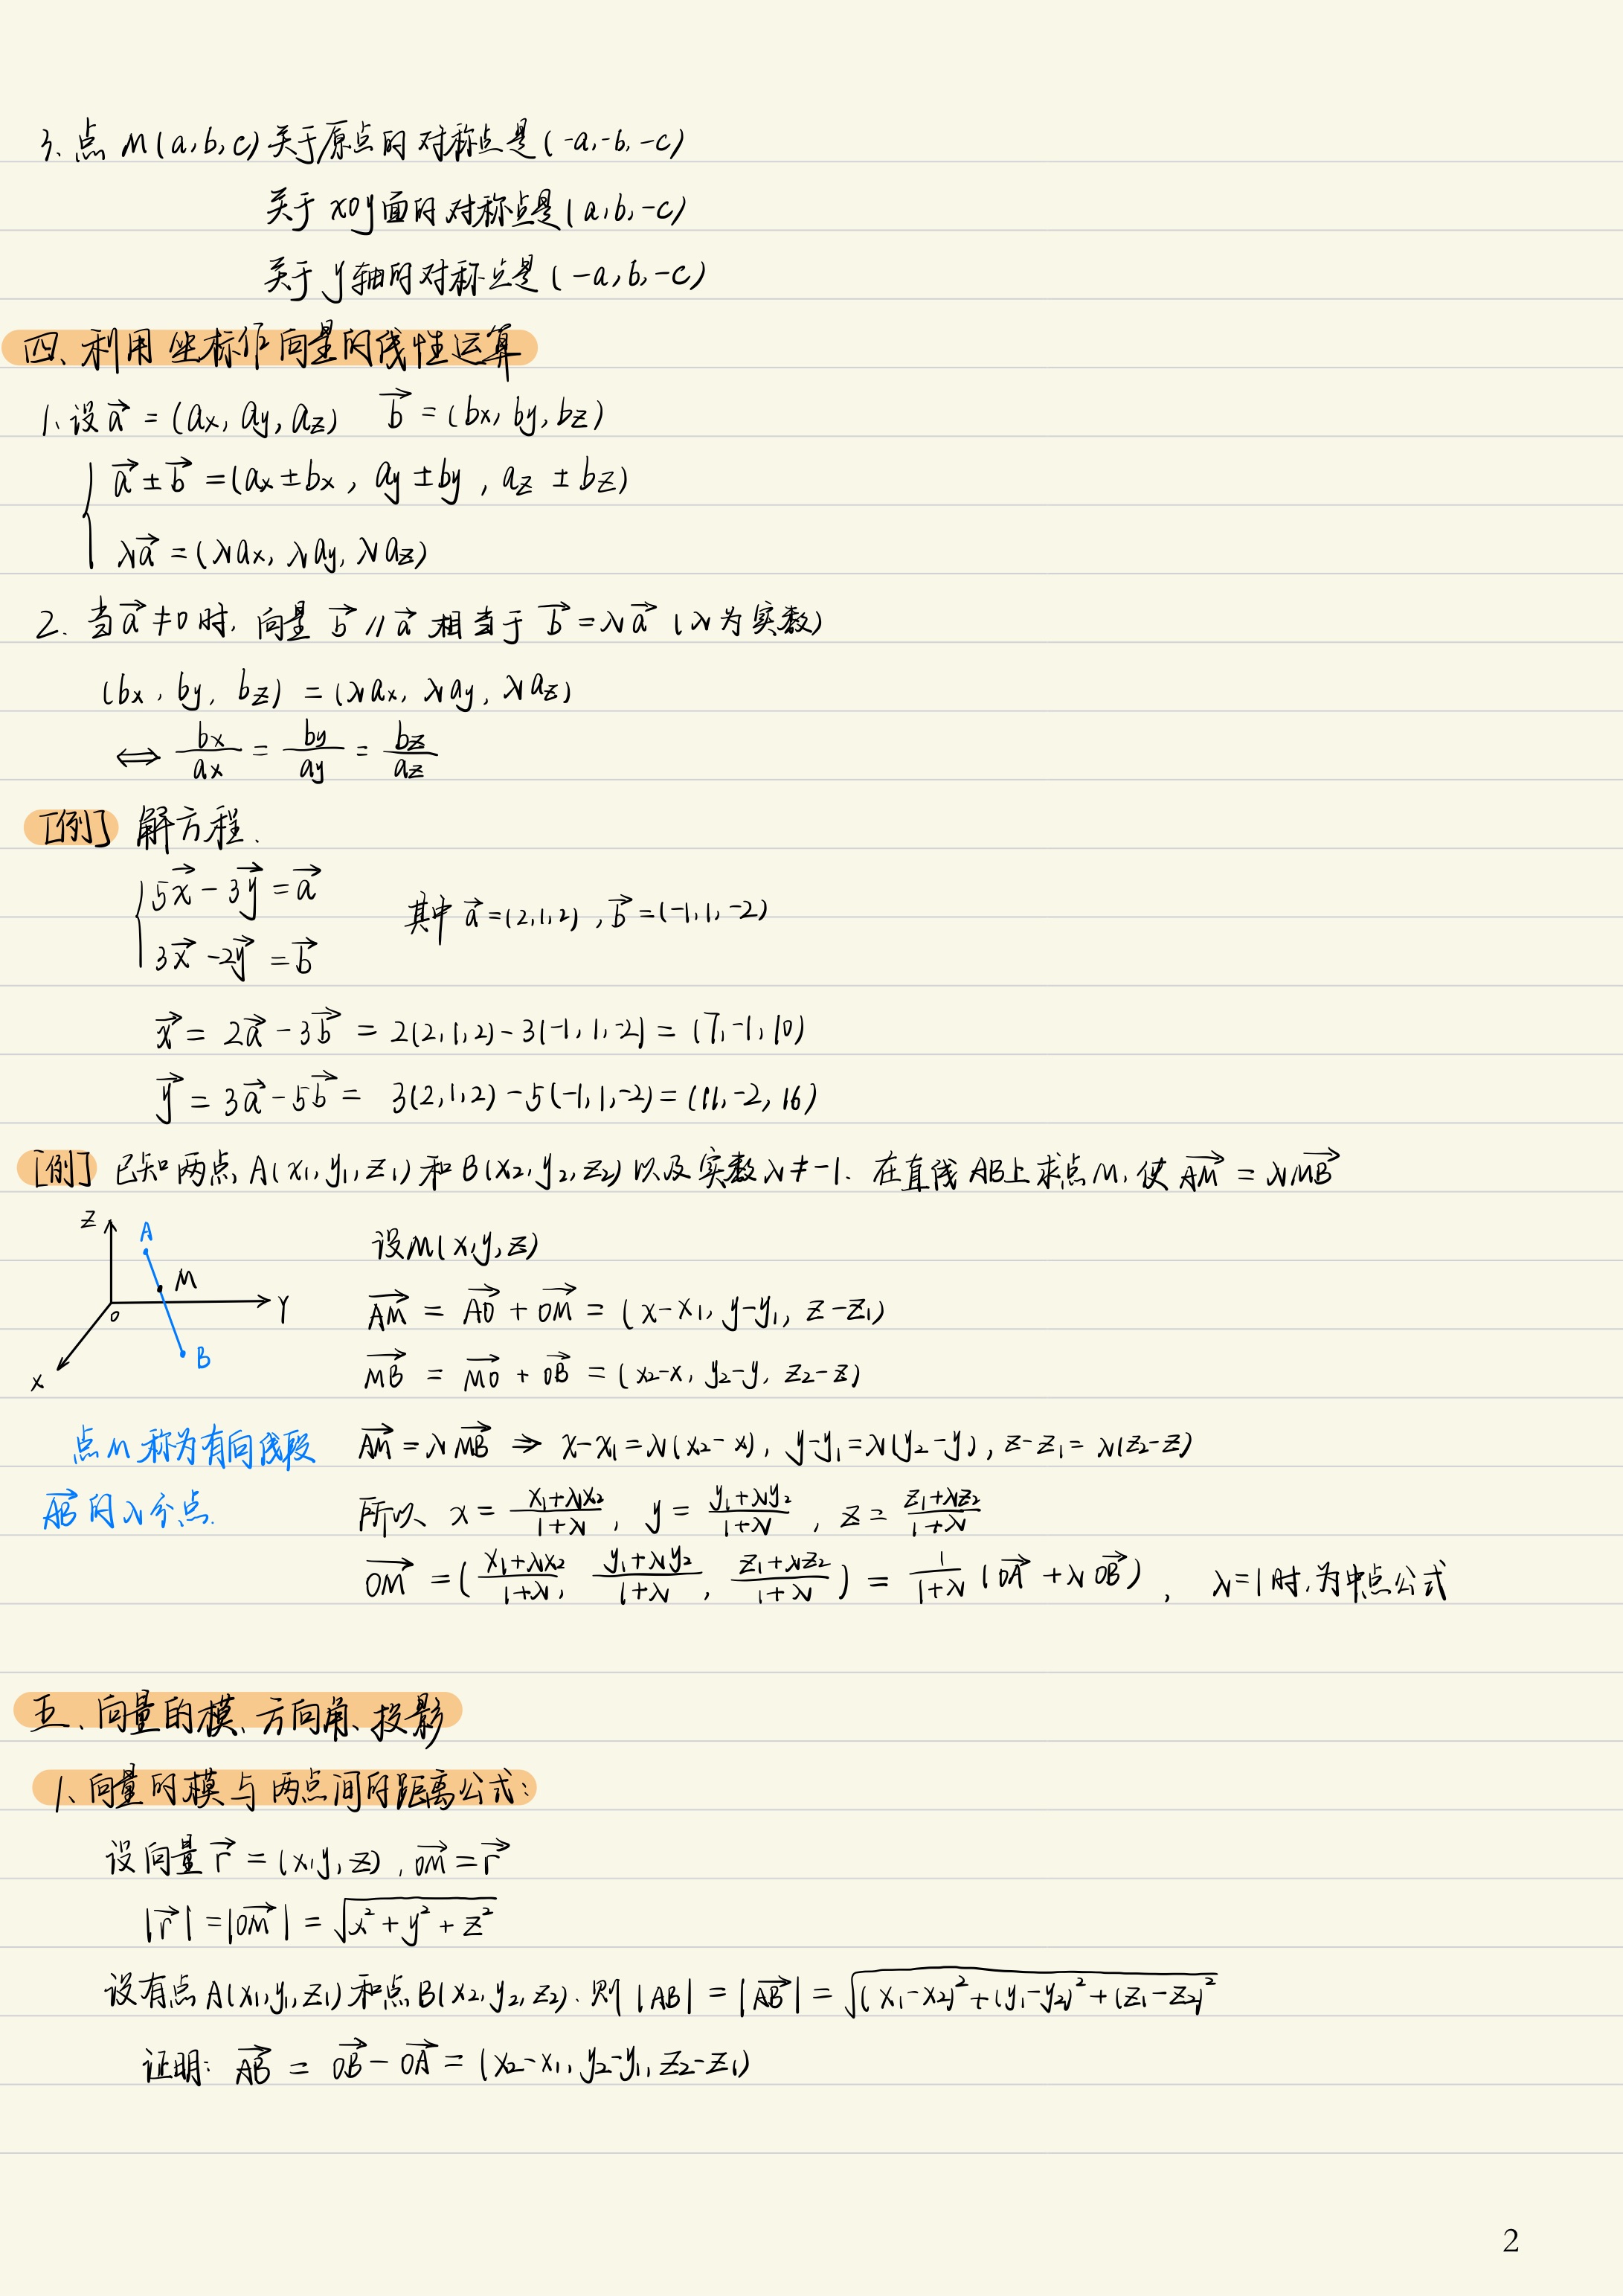 3、点 M(a,b,c)关于原点的对称点是(-a,-b,-c)
关于 xoy面的对称点是(a,b,-c)
关于 y轴的对称点是(-a,b,-c)
四、利用坐标作向量的线性运算
1、设 a⃗ = (ax, ay, az)  b⃗ = (bx, by, bz)
a⃗ ± b⃗ = (ax ± bx , ay ± by , az ± bz)
λa⃗ = (λax, λay, λaz)
2. 当 a⃗ ≠ 0 时, 向量 b⃗ // a⃗ 相当于 b⃗ = λa⃗ (λ为实数)
(bx , by, bz) = (λax, λay, λaz)
⟺ bx/ax = by/ay = bz/az
[例] 解方程.
5x⃗ - 3y⃗ = a⃗
其中 a⃗ = (2,1,2) , b⃗ = (-1,1,-2)
3x⃗ - 2y⃗ = b⃗
x⃗ = 2a⃗ - 3b⃗ = 2(2,1,2) - 3(-1,1,-2) = (7,-1,10)
y⃗ = 3a⃗ - 5b⃗ = 3(2,1,2) - 5(-1,1,-2) = (11,-2,16)
[例] 已知两点 A(x₁,y₁,z₁) 和 B(x₂,y₂,z₂) 以及实数 λ≠-1. 在直线 AB上求点M, 使 AM⃗ = λMB⃗
z
A
M
o
Y
B
x
设M(x,y,z)
AM⃗ = AO⃗ + OM⃗ = (x-x₁, y-y₁, z-z₁)
MB⃗ = MO⃗ + OB⃗ = (x₂-x, y₂-y, z₂-z)
点M 称为有向线段
AB⃗ 的λ分点.
AM⃗ = λMB⃗ ⇒ x-x₁=λ(x₂-x), y-y₁=λ(y₂-y), z-z₁=λ(z₂-z)
所以、 x = (x₁+λx₂)/(1+λ), y = (y₁+λy₂)/(1+λ), z = (z₁+λz₂)/(1+λ)
OM⃗ = ((x₁+λx₂)/(1+λ), (y₁+λy₂)/(1+λ), (z₁+λz₂)/(1+λ)) = 1/(1+λ) (OA⃗ + λOB⃗) , λ=1时,为中点公式
五、向量的模、方向角、投影
1、向量的模与两点间的距离公式:
设向量 r⃗ = (x,y,z) , OM⃗ = r⃗
|r⃗| = |OM⃗| = √(x²+y²+z²)
设有点 A(x₁,y₁,z₁) 和点 B(x₂,y₂,z₂). 则 |AB| = |AB⃗| = √((x₁-x₂)²+(y₁-y₂)²+(z₁-z₂)²)
证明: AB⃗ = OB⃗ - OA⃗ = (x₂-x₁, y₂-y₁, z₂-z₁)
2